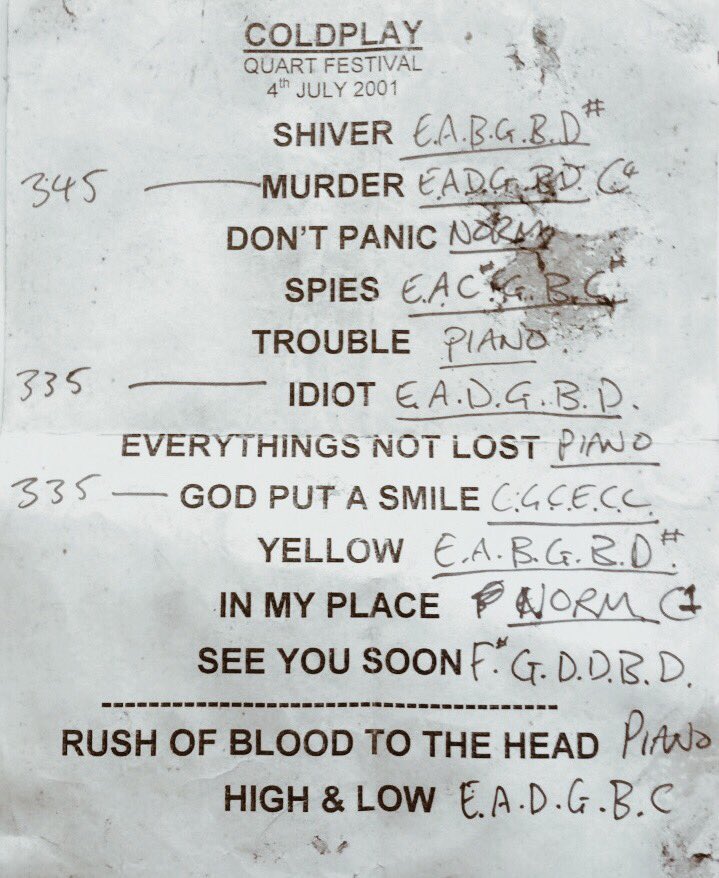 COLDPLAY
QUART FESTIVAL
4th JULY 2001
SHIVER E.A.B.G.B.D#
345 — MURDER E.A.D.G.B.D.
DON'T PANIC NORM
SPIES E.A.C#.G.B.C#
TROUBLE PIANO.
335 — IDIOT E.A.D.G.B.D.
EVERYTHINGS NOT LOST PIANO
335 — GOD PUT A SMILE C.G.C.E.C.C.
YELLOW E.A.B.G.B.D#.
IN MY PLACE NORM C1
SEE YOU SOON F#.G.D.D.B.D.
RUSH OF BLOOD TO THE HEAD PIANO
HIGH & LOW E.A.D.G.B.C